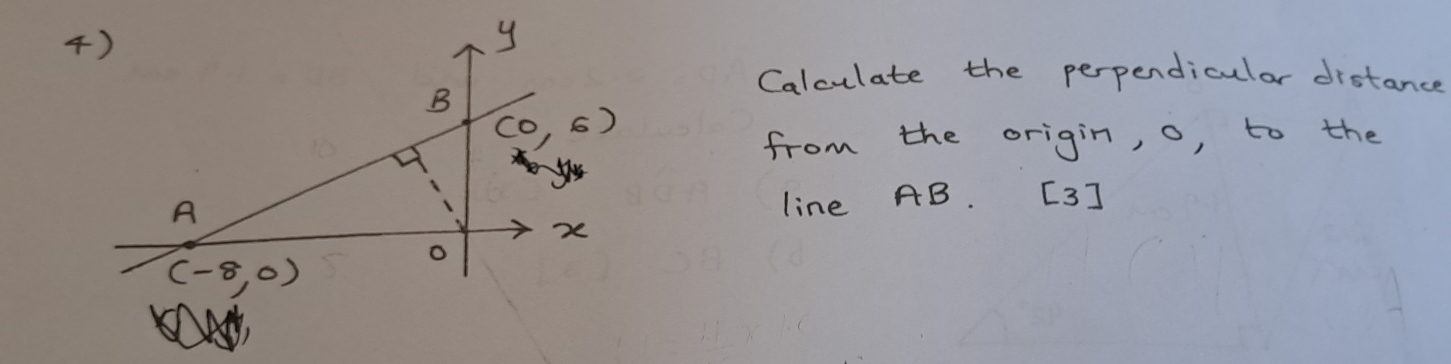 4)
y
B
(0, 6)
A
(-8,0)
0
x
Calculate the perpendicular distance
from the origin, 0, to the
line AB. [3]